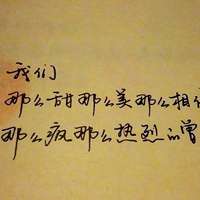 我们
那么甜那么美那么相信
那么疯那么热烈的曾